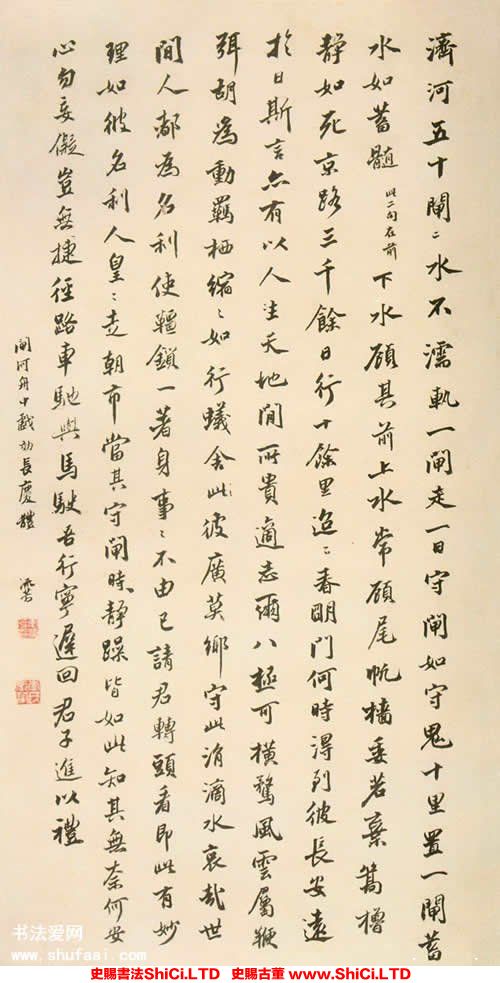 濟河五十閘〻水不濡軌一閘走一日守閘如守鬼十里置一閘蓄
水如蓄髓此二句在前下水顧其前上水常顧尾帆檣委若棄篙櫓
靜如死京路三千餘日行十餘里迢〻春明門何時得到彼長安遠
於日斯言亦有以人生天地間所貴適志爾八極可橫騖風雲屬鞭
弭胡為動羈栖縮〻如行蟻舍此彼廣莫鄉守此涓滴水哀哉世
間人都為名利使韁鎖一著身事〻不由己請君轉頭看即此有妙
理如彼名利人皇〻走朝市當其守閘時靜躁皆如此知其無奈何安
心勿妄儗豈無捷徑路車馳與馬駛吾行寧遲回君子進以禮
閘河舟中戲効長慶體
书法爱网
www.shufaai.com
史賜書法ShiCi.LTD 史賜古董 www.ShiCi.LTD